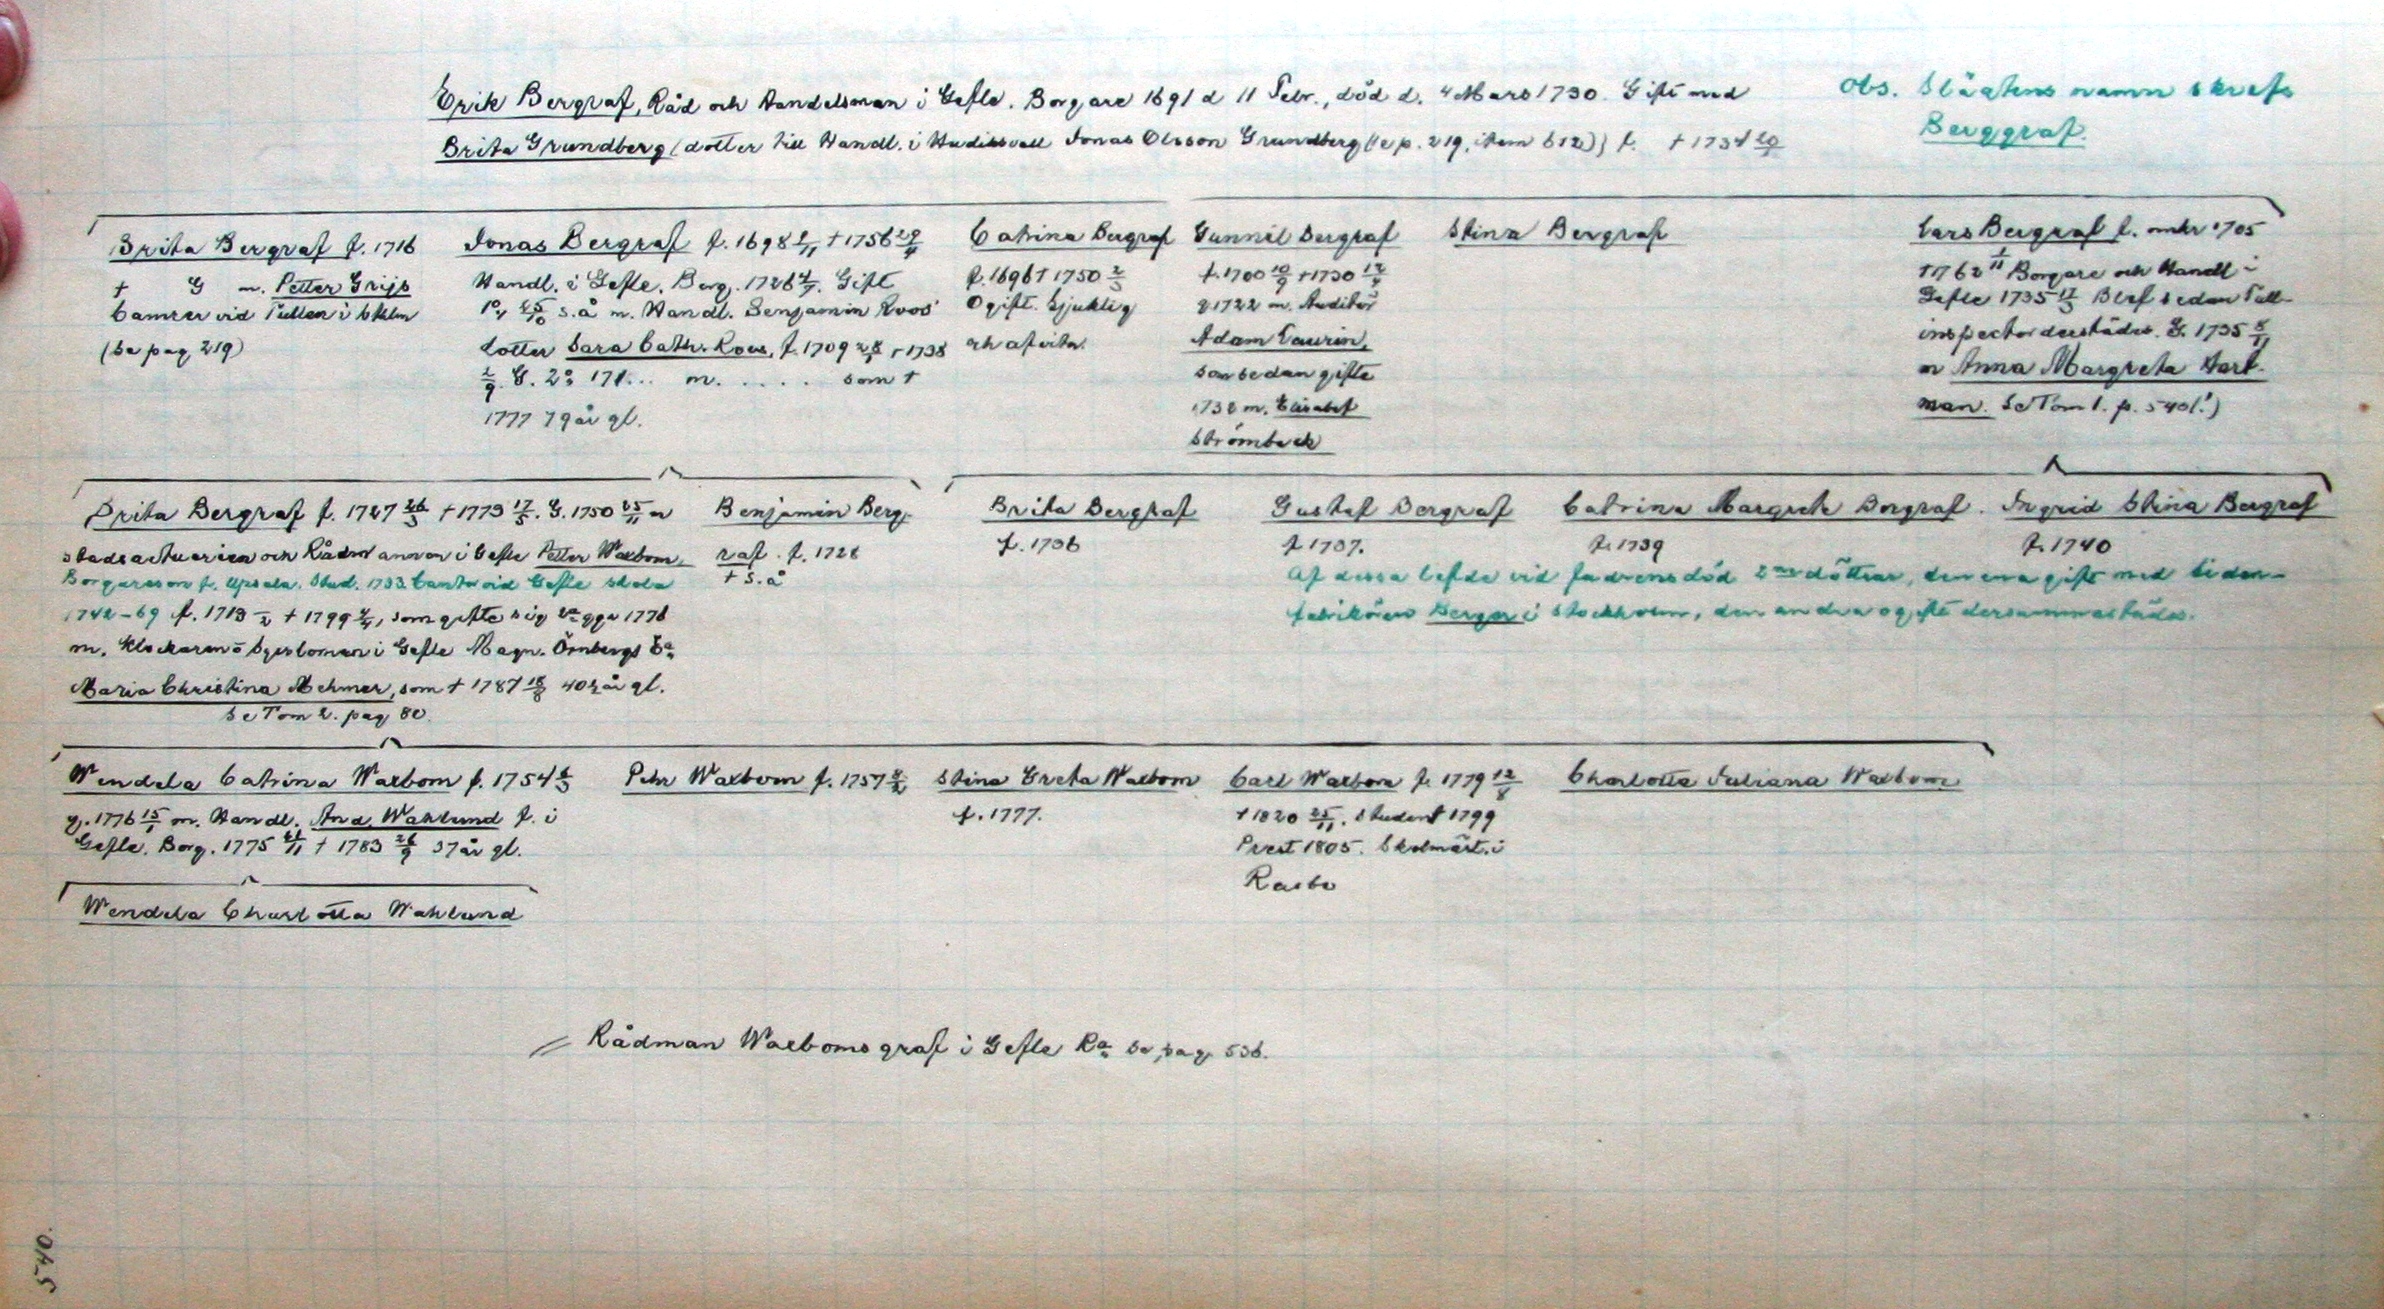 Erik Bergraf, Råd och Handelsman i Gefle. Borgare 1691 d 11 Febr., död d. 4 Mars 1730. Gift med
Brita Grundberg (dotter till Handl. i Hudiksvall Jonas Olsson Grundberg (se p. 219, item 612)) f. † 1734
Obs. Släktens namn skrefs
Berggraf.
Brita Bergraf f. 1716
† G m. Petter Grijs
Camrer vid Tullen i Sthlm
(Se pag 219)
Jonas Bergraf f. 1698 † 1756 29/4
Handl. i Gefle. Borg. 1726. Gift
1o, 25/10 s.å m. Handl. Benjamin Roos'
dotter Sara Cath. Roos, f. 1709 † 1738
2/9. G. 2o: 171... m. . . . . . som †
1777 79 år gl.
Catrina Bergraf
f. 1696 † 1750 2/3
Ogift. Sjuklig
och afvita.
Gunnil Bergraf
f. 1700 10/9 † 1730 12/4
g 1722 m. Auditör
Adam Laurin,
som sedan gifte
1732 m. Elisabet
Strömbeck
Stina Bergraf
Lars Bergraf f. omkr 1705
† 1762 1/11 Borgare och Handl i
Gefle 1735 17/3 Blef sedan Tull-
inspector derstädes. G. 1735 8/11
m Anna Margreta Hart-
man. Se Tom 1. p. 540(!)
Brita Bergraf f. 1727 26/3 † 1773 17/5. G. 1750 25/11 m
stadsactuarien och Rådmannen i Gefle Petter Waxbom.
Borgareson fr. Upsala. Stud. 1733. Cantor vid Gefle skola
1742-69 f. 1713 † 1799, som gifte sig 2a ggn 1776
m. Klockarens Sperloman i Gefle Magn. Örnbergs Ea
Maria Christina Mehmer, som † 1787 18/8 40½ år gl.
Se Tom 2. pag 80.
Benjamin Berg-
raf. f. 1728
† s.å
Brita Bergraf
f. 1736
Gustaf Bergraf
f 1737.
Catrina Margreta Bergraf.
f. 1739
Ingrid Stina Bergraf
f. 1740
Af dessa lefde vid fadrens död 2ne döttrar, den ena gift med Siden-
fabrikören Berger i Stockholm, den andra ogift dersammastädes.
Wendela Catrina Waxbom f. 1754
g. 1776 15/1 m. Handl. And. Wahlund f. i
Gefle. Borg. 1775 21/11 † 1783 26/9 37 år gl.
Petr Waxbom f. 1757
Stina Greta Waxbom
f. 1777.
Carl Waxbom f. 1779 12/8
† 1820 25/11. Student 1799
Prest 1805. Skolmäst. i
Rasbo
Charlotta Juliana Waxbom
Wendela Charlotta Wahlund
// Rådman Waxboms graf i Gefle Ka se pag. 536.
540.